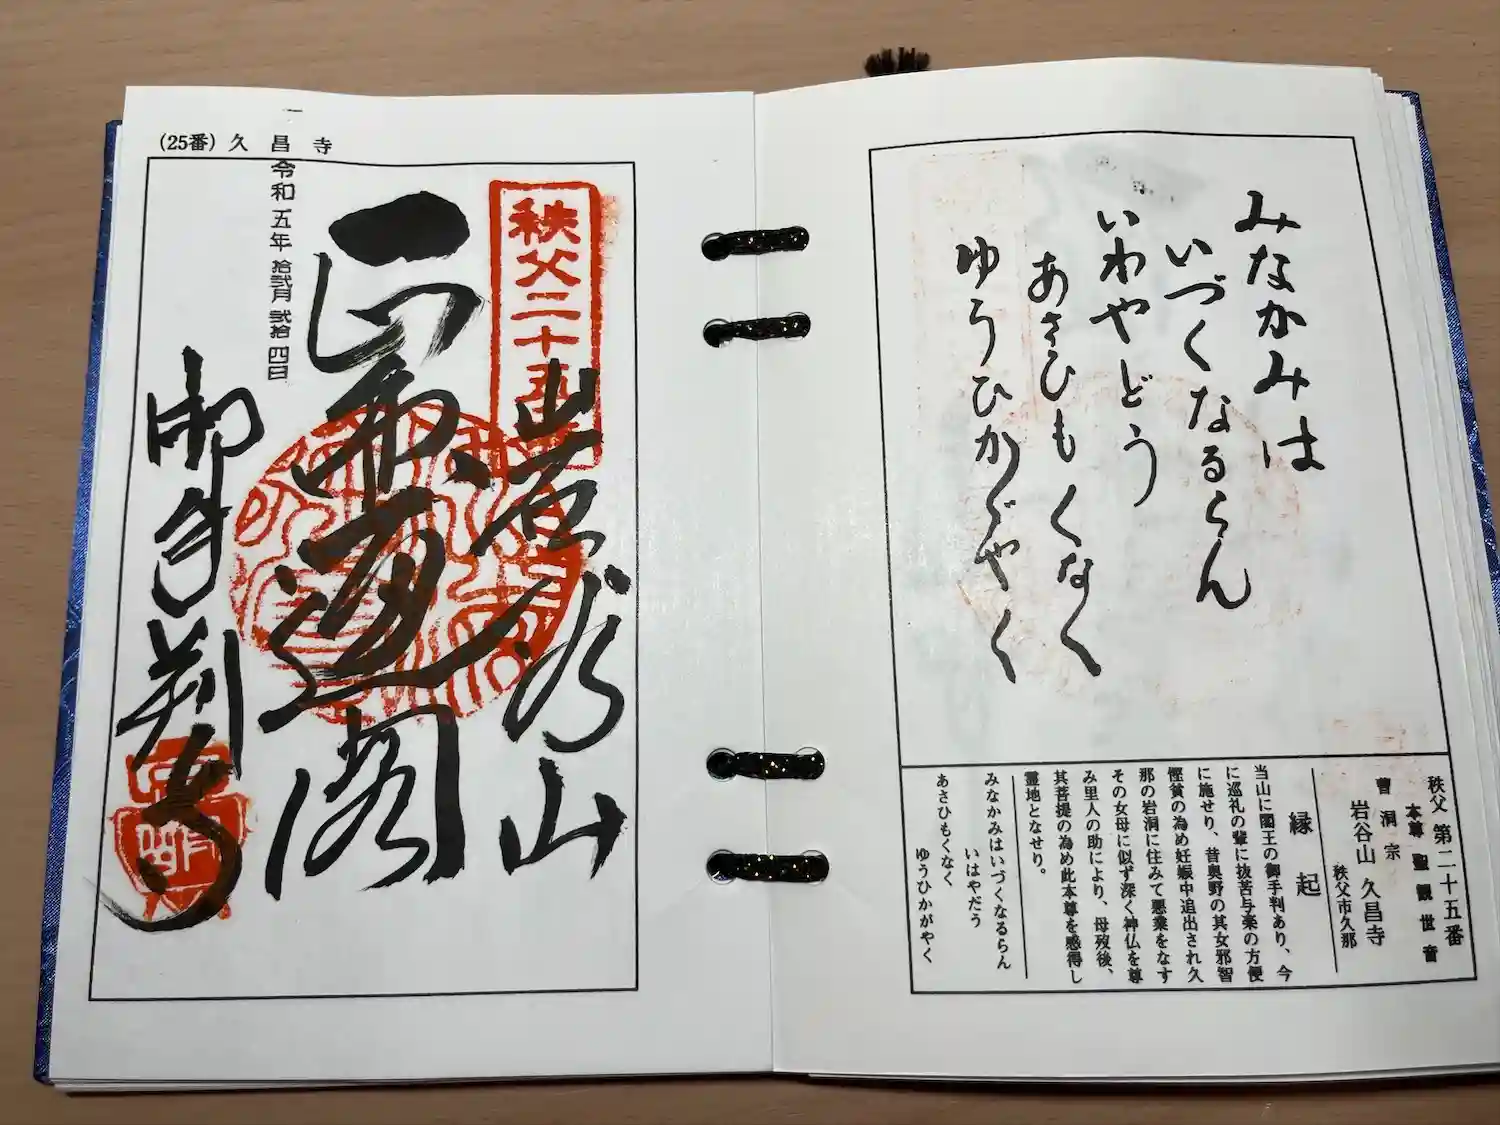 みなかみは
いづくなるらん
いわやどう
あさひもくなく
ゆうひかゞやく
秩父 第二十五番
本尊 聖観世音
曹洞宗
岩谷山 久昌寺
秩父市久那
縁起
当山に閻王の御手判あり、今
に巡礼の輩に抜苦与楽の方便
に施せり、昔奥野の其女邪智
慳貧の為め妊娠中追出され久
那の岩洞に住みて悪業をなす
その女母に似ず深く神仏を尊
み里人の助により、母歿後、
其菩提の為め此本尊を感得し
霊地となせり。
みなかみはいづくなるらん
いはやだう
あさひもくなく
ゆうひかがやく
(25番) 久昌寺
秩父二十五
岩谷山
令和五年拾弐月弐拾四日
御手判寺